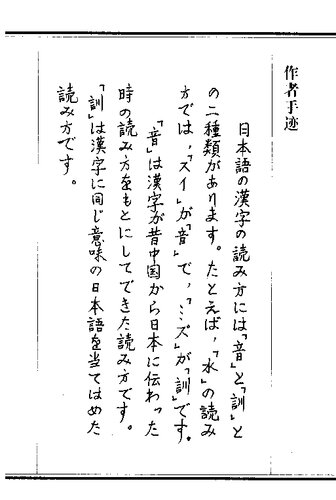 作者手迹
日本語の漢字の読み方には「音」と「訓」と
の二種類があります。たとえば,「水」の読み
方では,「スイ」が「音」で,「ミズ」が「訓」です。
「音」は漢字が昔中国から日本に伝わった
時の読み方をもとにしてできた読み方です。
「訓」は漢字に同じ意味の日本語を当てはめた
読み方です。